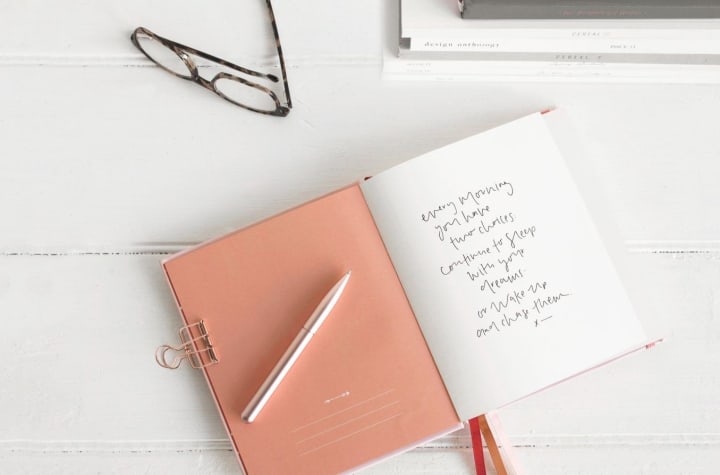 CEREAL
design anthology
CEREAL
every Morning
you have
two choices:
continue to sleep
with your
dreams
or wake up
and chase them
x—